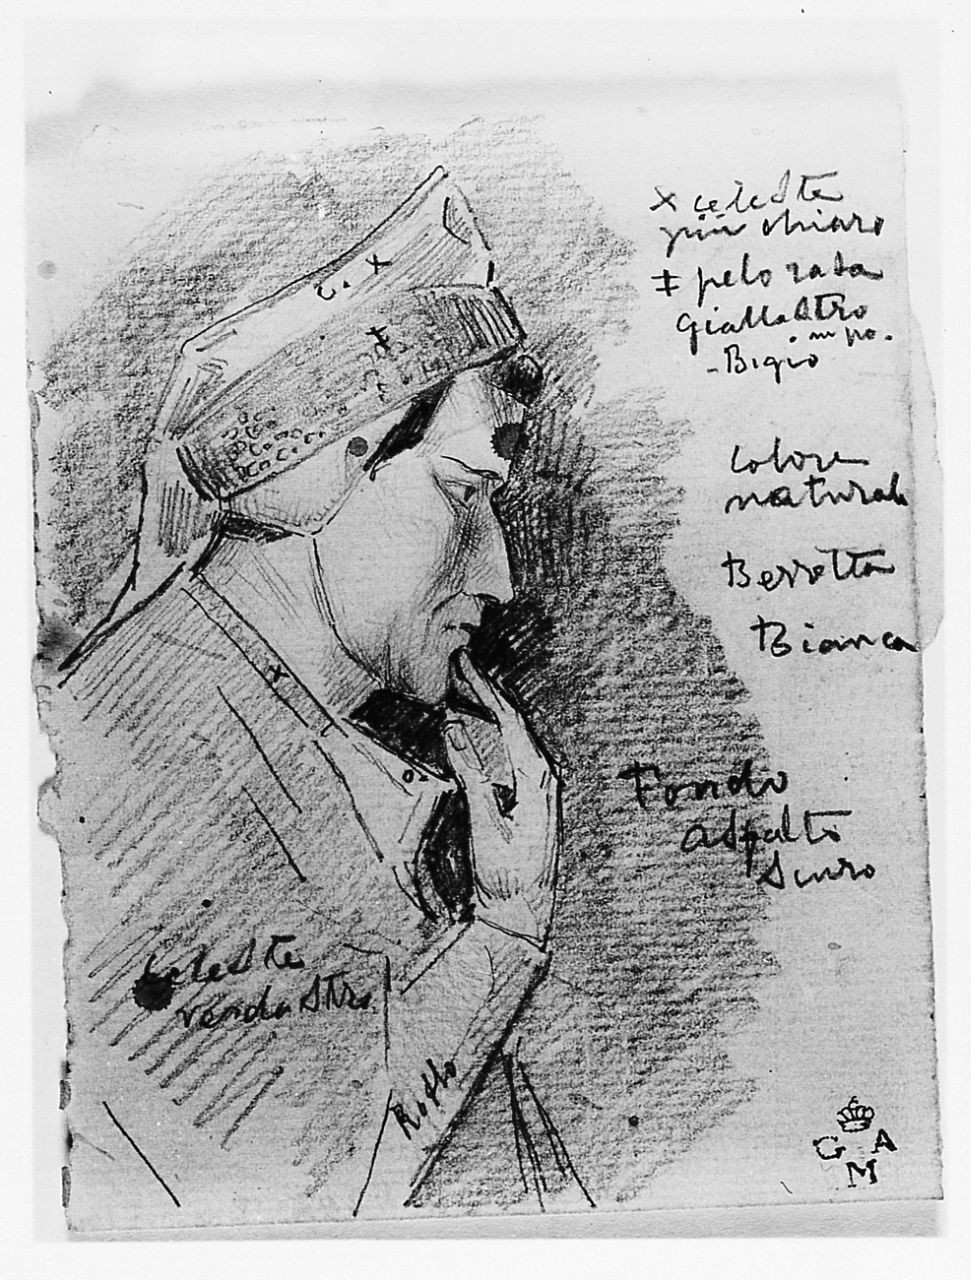 x celeste
più chiaro
‡ pelo rasa
giallastro
un po.
-Bigio
colore
naturale
Berretta
Bianca
Fondo
aspalto
scuro
celeste
verdastro
Rosso
x
‡
x
G A
M